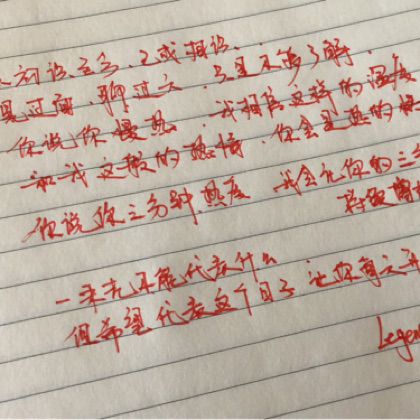 初识至今，已成相识，
见过面，聊过天，只是不够了解
你说你慢热 我相信这样的温度
和我这般的热情，你会是热的
你说你三分钟热度 我会让你的三分
一束花不能代表什么
但希望代表这个日子让你有之
Legen